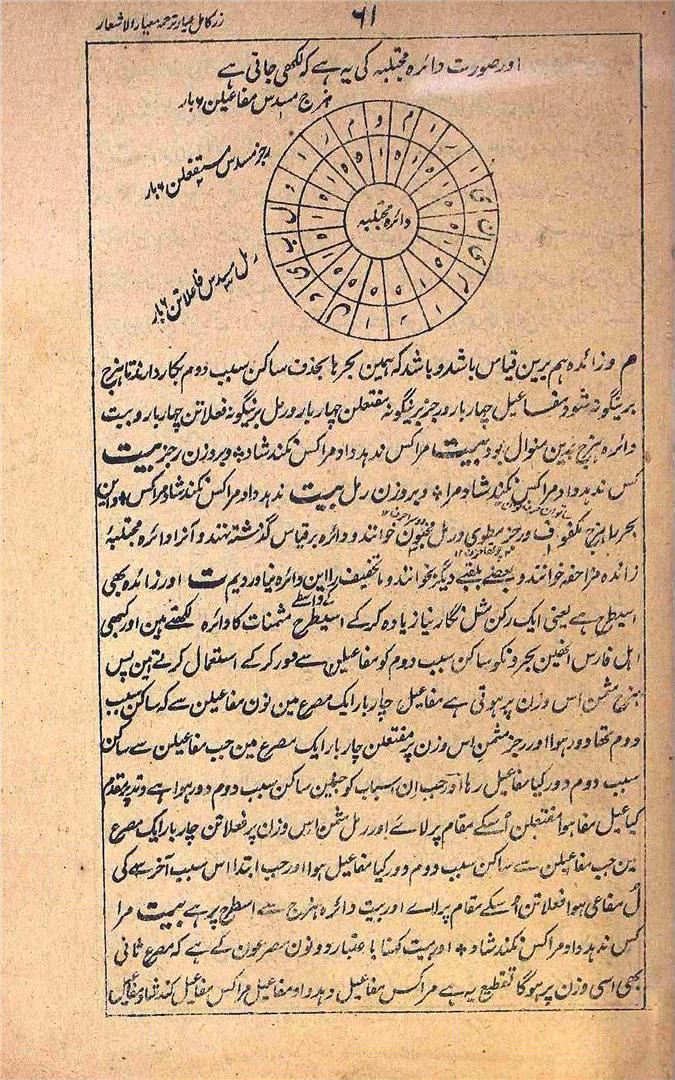 زرکامل عیار ترجمہ معیار الاشعار
۶۱
اور صورت دائرہ مجتلبہ کی یہ ہے کہ لکھی جاتی ہے
ہزج مسدس مفاعیلن ۶ بار
رجز مسدس مستفعلن ۶ بار
رمل مسدس فاعلاتن ۶ بار
دائرہ مجتلبہ
م وزائدہ ہم برین قیاس باشد و باشد کہ ہمین بحرہا بحذف ساکن سبب دوم بکار دارند تا ہزج
برینگونہ شود مفاعیل چہار بار و رجز برینگونہ مفتعلن چہار بار و رمل برینگونہ فعلاتن چہار بار و بیت
دائرہ ہزج بدین منوال بود بیت مرا کس ندہد داد مرا کس نکند شاد ٭ و بروزن رجز بیت
کس ندہد داد مرا کس نکند شاد مرا ٭ و بروزن رمل بیت ندہد داد مرا کس نکند شاد مرا کس ٭ و این
بحرہا ہزج مکفوف و رجز مطوی و رمل مخبون خوانند و دائرہ بر قیاس گذشتہ نہند و آنرا دائرہ مجتلبۂ
زائدہ مزاحفہ خوانند و بعضے بلقبے دیگر بخوانند و ما تخفیف را این دائرہ نیاوردیم ت اور زائدہ بھی
اسیطح ہے یعنی ایک رکن مثل نگار نیاز یادہ کر کے اسیطرح مثمنات کا دائرہ کے واسطے لکھتے ہین اور کبھی
اہل فارس انھین بحرونکو ساکن سبب دوم کو مفاعیلن سے دور کر کے استعمال کرتے ہین پس
ہزج مثمن اس وزن پر ہوتی ہے مفاعیل چار بار ایک مصرع مین نون مفاعیلن سے کہ ساکن سبب
دوم تھا دور ہوا اور رجز مثمن اس وزن پر مفتعلن چار بار ایک مصرع مین جب مفاعیلن سے ساکن
سبب دوم دور کیا مفاعیل رہا اور جب ان اسباب کو جنمین ساکن سبب دوم دور ہوا ہے وتد پر مقدم
کیا عیل مفا ہوا مفتعلن اُسکے مقام پر لائے اور رمل مثمن اس وزن پر فعلاتن چار بار ایک مصرع
مین جب مفاعیلن سے ساکن سبب دوم دور کیا مفاعیل ہوا اور جب ابتدا اس سبب آخر سے کی
لُ مفاعی ہوا فعلاتن اُسکے مقام پر لائے اور بیت دائرہ ہزج سے اسطرح پر ہے بیت مرا
کس ندہد داد مرا کس نکند شاد ٭ اور بیت کہنا با عتبار دونون مصرعون کے ہے کہ مصرع ثانی
بھی اسی وزن پر ہوگا تقطیع یہ ہے مرا کس مفاعیل دہد داد مفاعیل مرا کس مفاعیل کند شاد مفاعیل